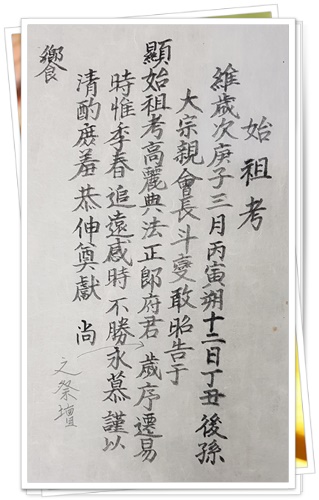 始祖考
維歲次庚子三月丙寅朔十二日丁丑 後孫
大宗親會長斗變敢昭告于
顯始祖考高麗典法正郎府君 歲序遷易
時惟季春追遠感時不勝永慕謹以
清酌庶羞恭伸奠獻 尚
饗
之祭壇